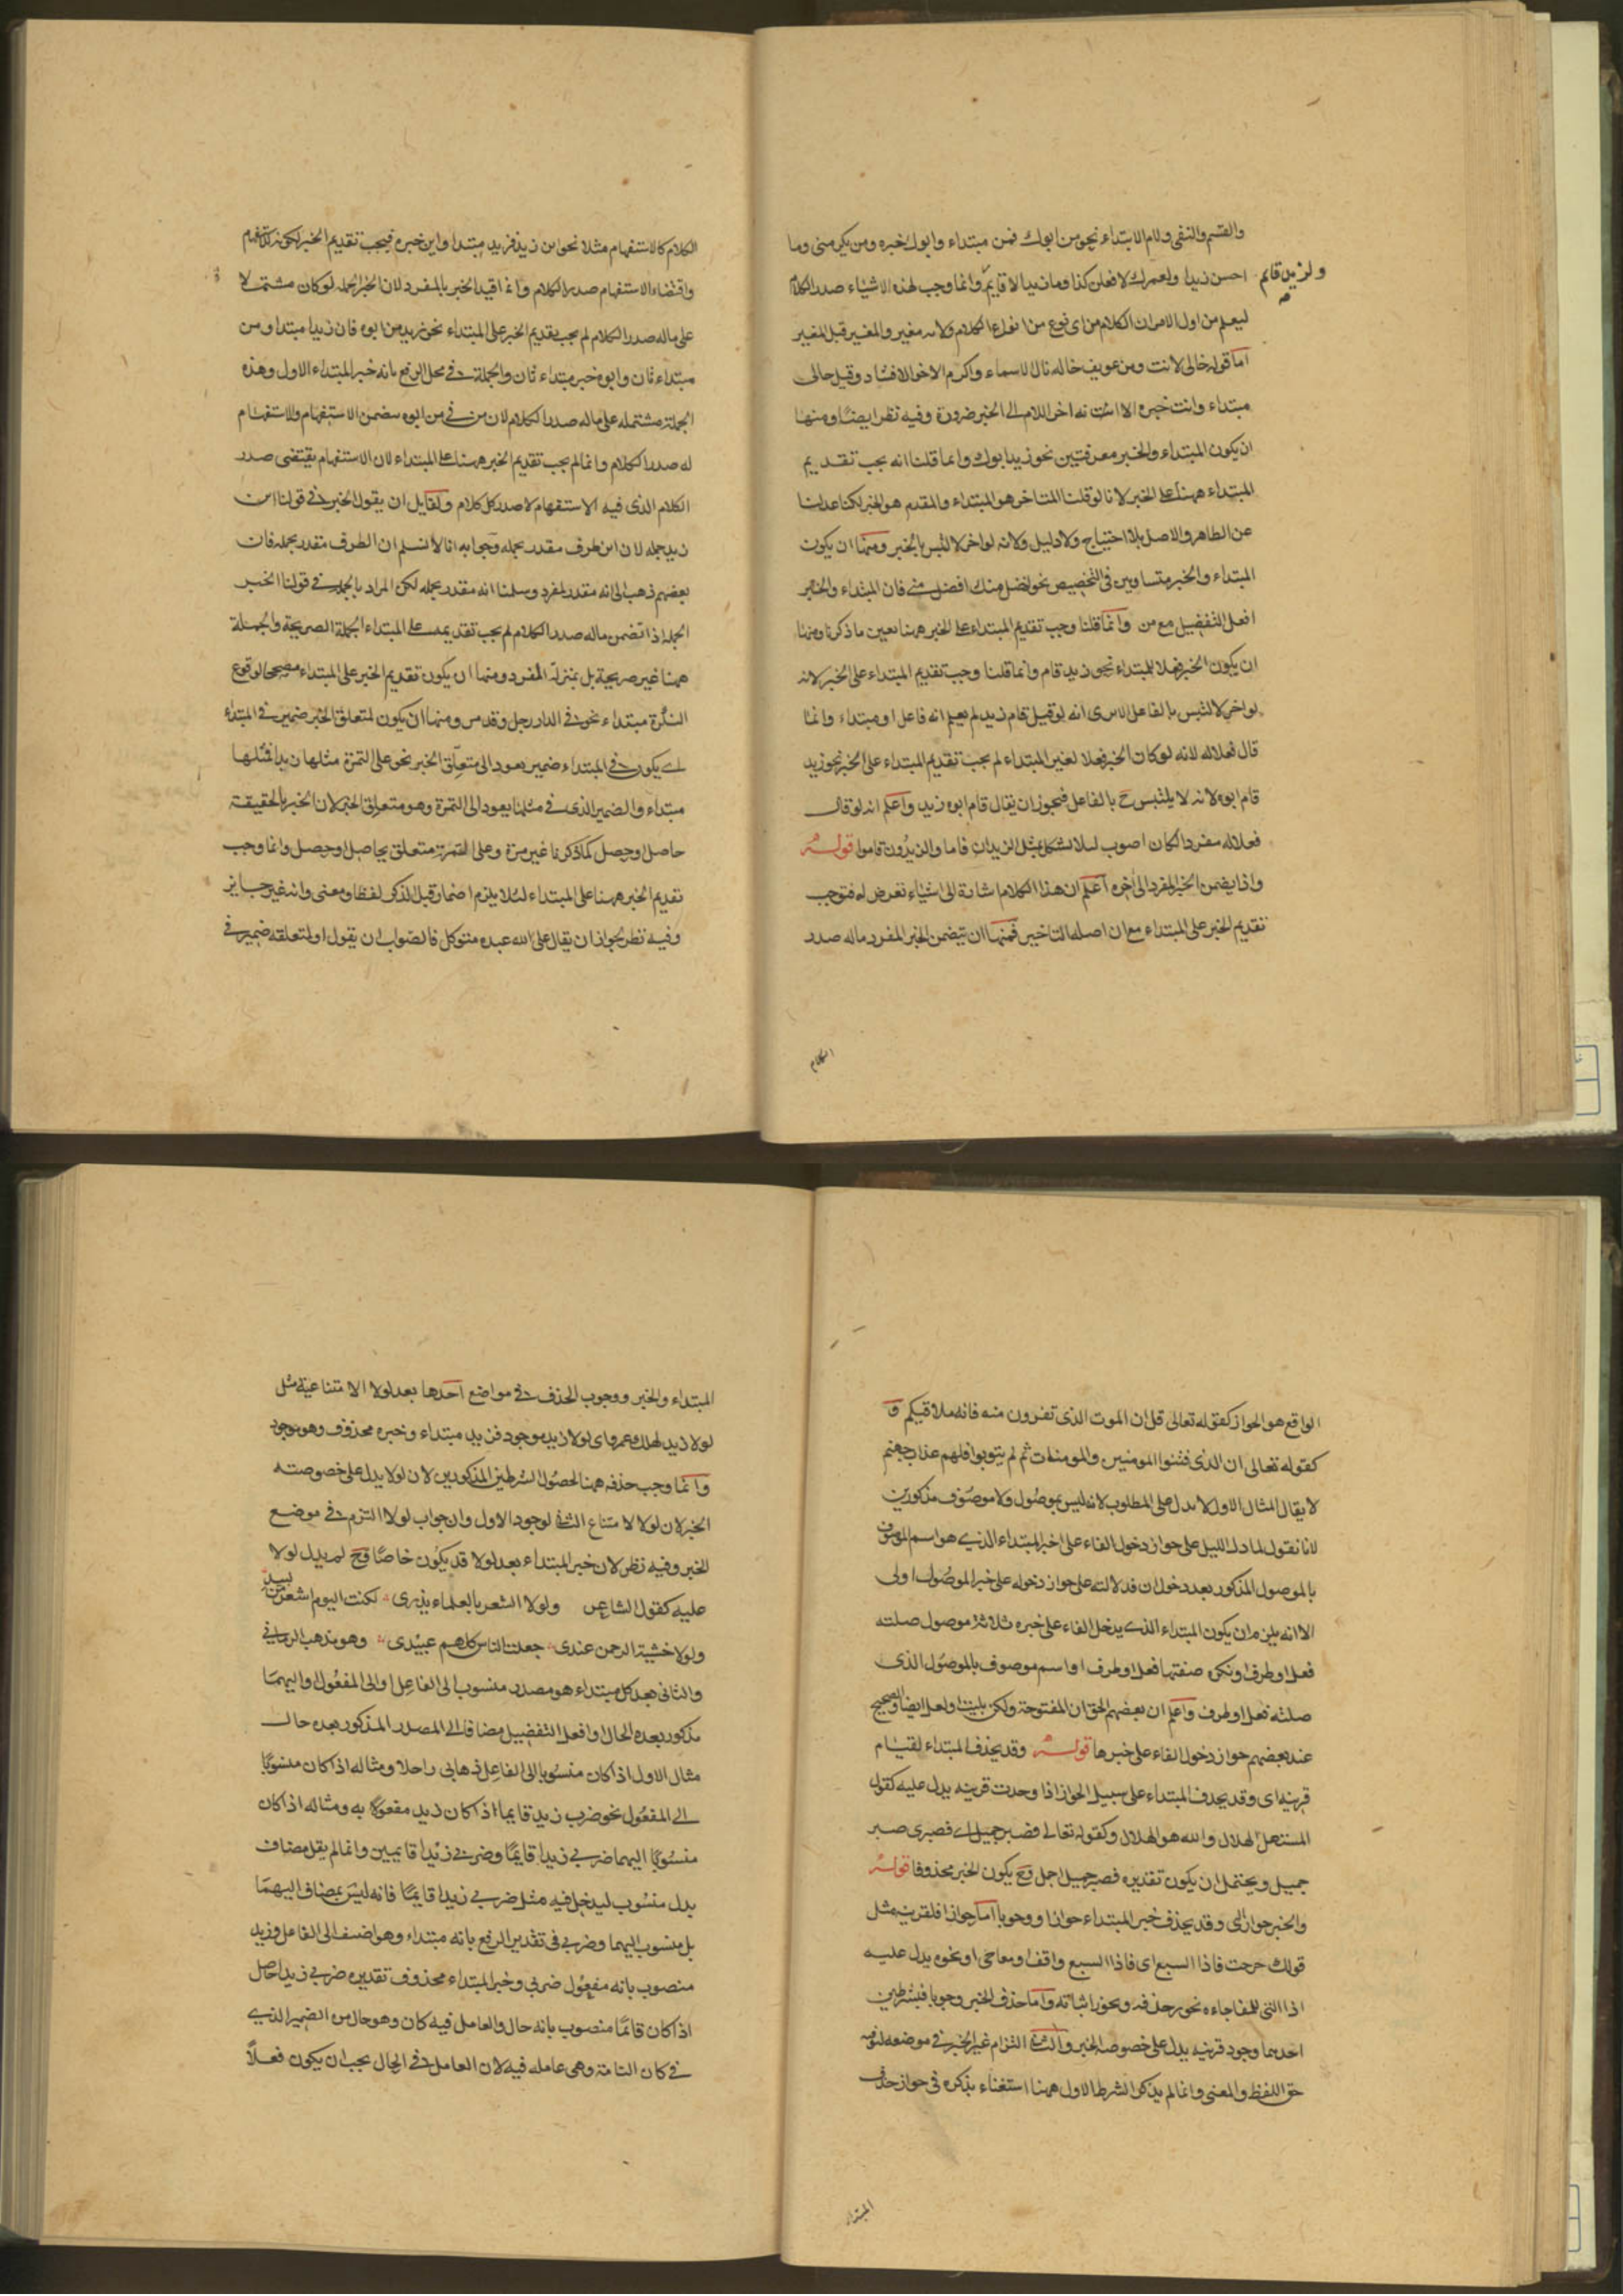 والقسم والنفى ولام الابتداء نحو من ابوك فمن مبتداء وابوك خبره ومن يكرمنى وما
ولزيد قائم
احسن زيدا ولعمرك لافعلن كذا وما زيد الا قايم وانما وجب لهذه الاشياء صدر الكلام
ليعلم من اول الامر ان الكلام من اى نوع من انواع الكلام ولانه مغير والمغير قبل المغير
اما قوله خالى لانت ومن عويف خاله نال السماء واكرم الاخوالا فشاد وقيل خالى
مبتداء وانت خبره الا انه اخر اللام الى الخبر ضرورة وفيه نظر ايضا ومنها
ان يكون المبتداء والخبر معرفتين نحو زيد ابوك وانما قلنا انه يجب تقديم
المبتداء ههنا على الخبر لانا لو قلنا المتاخر هو المبتداء والمقدم هو الخبر لكنا عدلنا
عن الظاهر والاصل بلا احتياج ولا دليل ولانه لو اخر لالتبس بالخبر ومنها ان يكون
المبتداء والخبر متساويين فى التخصيص نحو افضل منك افضل منى فان المبتداء والخبر
افعل التفضيل مع من وانما قلنا وجب تقديم المبتداء على الخبر ههنا بعين ما ذكرنا ومنها
ان يكون الخبر فعلا للمبتداء نحو زيد قام وانما قلنا وجب تقديم المبتداء على الخبر لانه
لو اخر لالتبس بالفاعل الا يرى انه لو قيل قام زيد لم يعلم انه فاعل او مبتداء وانما
قال فعلا له لانه لو كان الخبر فعلا لغير المبتداء لم يجب تقديم المبتداء على الخبر نحو زيد
قام ابوه لانه لا يلتبس ح بالفاعل فيجوز ان يقال قام ابوه زيد واعلم انه لو قال
فعلا له مفردا لكان اصوب لئلا يشكل بمثل الزيدان قاما والزيدون قاموا قوله
واذا يضمن الخبر المفرد الى اخره اعلم ان هذا الكلام اشارة الى اشياء تعرض له فتوجب
تقديم الخبر على المبتداء مع ان اصله التاخير فمنها ان يتضمن الخبر المفرد ماله صدر
الكلام
الكلام كالاستفهام مثلا نحو اين زيد فزيد مبتدا واين خبره فيجب تقديم الخبر لكونه للاستفهام
واقتضاء الاستفهام صدر الكلام وانما اقيد الخبر بالمفرد لان الخبر الجمله لو كان مشتملا
على ماله صدر الكلام لم يجب تقديم الخبر على المبتداء نحو زيد من ابوه فان زيدا مبتدا ومن
مبتداء ثان وابوه خبر مبتداء ثان والجملة فى محل الرفع بانه خبر المبتداء الاول وهذه
الجملة مشتمله على ماله صدر الكلام لان من فى من ابوه يتضمن الاستفهام والاستفهام
له صدر الكلام وانما لم يجب تقديم الخبر ههنا على المبتداء لان الاستفهام يقتضى صدر
الكلام الذى فيه الاستفهام لا صدر كل كلام ولقايل ان يقول الخبر فى قولنا اين
زيد جمله لان اين ظرف مقدر بجمله وجوابه انا لا نسلم ان الظرف مقدر بجمله فان
بعضهم ذهب الى انه مقدر بمفرد وسلمنا انه مقدر بجمله لكن المراد بالجملة فى قولنا الخبر
الجمله اذا تضمن ماله صدر الكلام لم يجب تقديمه على المبتداء الجملة الصريحة والجملة
ههنا غير صريحة بل بمنزلة المفرد ومنها ان يكون تقديم الخبر على المبتداء مصححا لوقوع
النكرة مبتداء نحو فى الدار رجل وقد مر ومنها ان يكون لمتعلق الخبر ضمير فى المبتداء
اى يكون فى المبتداء ضمير يعود الى متعلق الخبر نحو على التمرة مثلها زبدا فمثلها
مبتداء والضمير الذى فى مثلها يعود الى التمرة وهو متعلق الخبر لان الخبر بالحقيقة
حاصل او حصل كما ذكرنا غير مرة وعلى التمرة متعلق بحاصل او حصل وانما وجب
تقديم الخبر ههنا على المبتداء لئلا يلزم اضمار قبل الذكر لفظا ومعنى وانه غير جايز
وفيه نظر لجواز ان يقال على الله عبده متوكل فالصواب ان يقول او لمتعلقه ضمير فى
الواقع هو الجواز كقوله تعالى قل ان الموت الذى تفرون منه فانه ملاقيكم و
كقوله تعالى ان الذين فتنوا المومنين والمومنات ثم لم يتوبوا فلهم عذاب جهنم
لا يقال المثال الاول لا يدل على المطلوب لانه ليس بموصول ولا موصوف مذكورين
لانا نقول لما دل الليل على جواز دخول الفاء على خبر المبتداء الذى هو اسم الموصوف
بالموصول المذكور بعد دخول ان فدلالته على جواز دخوله على خبر الموصول اولى
الا انه يلزم ان يكون المبتداء الذى يدخل الفاء على خبره ثلاثة موصول صلته
فعل او ظرف او نكره صفتها فعل او ظرف او اسم موصوف بالموصول الذى
صلته فعل او ظرف واعلم ان بعضهم الحق ان المفتوحة ولكن بليت ولعل ايضا والصحيح
عند بعضهم جواز دخول الفاء على خبرها قوله وقد يحذف المبتداء لقيام
قرينه اى وقد يحذف المبتداء على سبيل الجواز اذا وجدت قرينه يدل عليه كقول
المستهل الهلال والله هو الهلال وكقوله تعالى فصبر جميل اى فصبرى صبر
جميل ويحتمل ان يكون تقديره فصبر جميل اجمل وح يكون الخبر محذوفا قوله
والخبر جوازا اى وقد يحذف خبر المبتداء جوازا ووجوبا اما جوازا فلقرينه مثل
قولك خرجت فاذا السبع اى فاذا السبع واقف او مفاجى او نحوه يدل عليه
اذا التى للمفاجاءه نحو رجل فيه ويجوز اثباته واما حذف الخبر وجوبا فبشرطين
احدهما وجود قرينه يدل على خصوصه الخبر والثانى التزام غير الخبر فى موضعه لتوفيه
حق اللفظ والمعنى وانما لم يذكر الشرط الاول ههنا استغناء بذكره فى جواز حذف
المبتداء
المبتداء والخبر ووجوب الحذف فى مواضع احدها بعد لولا الامتناعية مثل
لولا زيد لهلك عمرو اى لولا زيد موجود فزيد مبتداء وخبره محذوف وهو موجود
وانما وجب حذفه ههنا لحصول الشرطين المذكورين لان لولا يدل على خصوصته
الخبر لان لولا لامتناع الثانى لوجود الاول وان جواب لولا التزم فى موضع
الخبر وفيه نظر لان خبر المبتداء بعد لولا قد يكون خاصا وح لم يدل لولا
عليه كقول الشاعر ولولا الشعر بالعلماء يزرى لكنت اليوم اشعر من لبيد
ولولا خشية الرحمن عندى جعلت الناس كلهم عبيدى وهو مذهب الرمانى
والثانى بعد كل مبتداء هو مصدر منسوب الى الفاعل او الى المفعول او اليهما
مذكور بعده الحال او افعل التفضيل مضافا الى المصدر المذكور بعده حال
مثال الاول اذا كان منسوبا الى الفاعل ذهابى راجلا ومثاله اذا كان منسوبا
الى المفعول نحو ضرب زيد قايما اذا كان زيد مفعولا به ومثاله اذا كان
منسوبا اليهما ضربى زيدا قايما وضربى زيدا قايمين وانما لم يقل مضاف
بدل منسوب ليدخل فيه مثل ضربى زيدا قايما فانه ليس بمضاف اليهما
بل منسوب اليهما وضربى فى تقدير الرفع بانه مبتداء وهو اضيف الى الفاعل وزيد
منصوب بانه مفعول ضربى وخبر المبتداء محذوف تقديره ضربى زيدا حاصل
اذا كان قائما منصوب بانه حال والعامل فيه كان وهو حال من الضمير الذى
فى كان التامة وهى عامله فيه لان العامل فى الحال يجب ان يكون فعلا